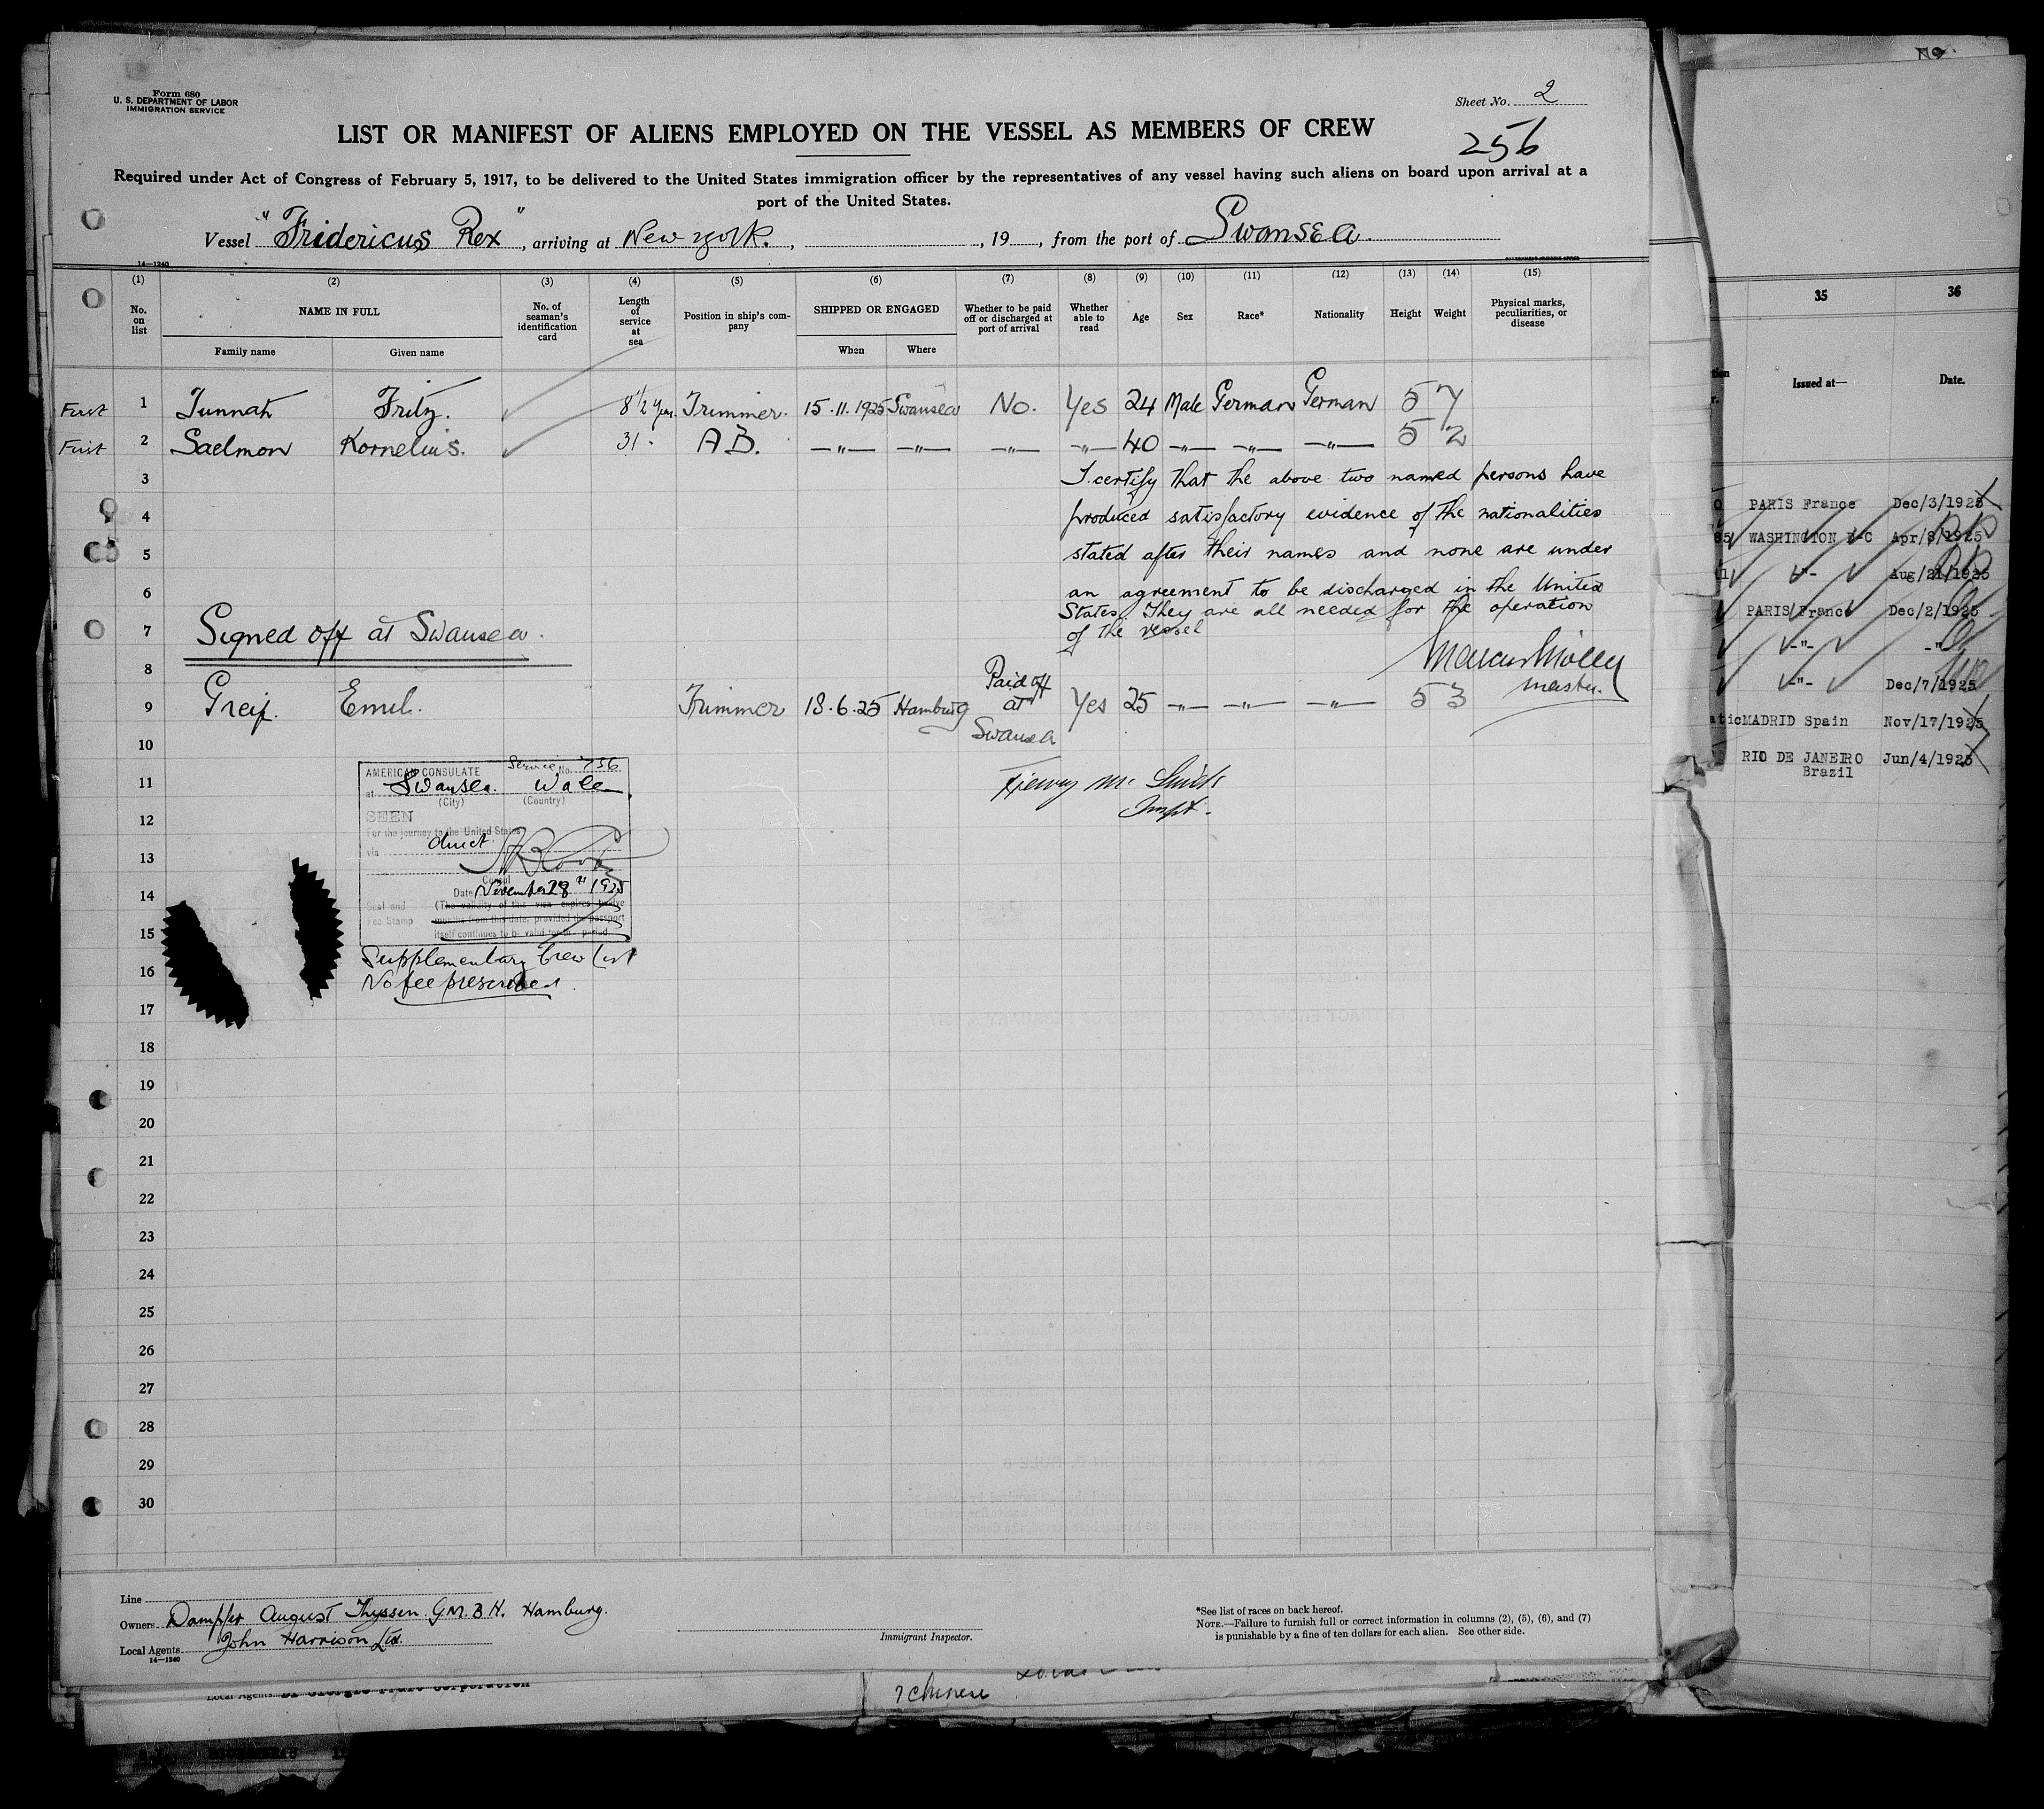 Form 680
U. S. DEPARTMENT OF LABOR
IMMIGRATION SERVICE
Sheet No. 2
LIST OR MANIFEST OF ALIENS EMPLOYED ON THE VESSEL AS MEMBERS OF CREW
256
Required under Act of Congress of February 5, 1917, to be delivered to the United States immigration officer by the representatives of any vessel having such aliens on board upon arrival at a
port of the United States.
Vessel "Fridericus Rex", arriving at New York., , 19 , from the port of Swansea.
14—1240
(1) (2) (3) (4) (5) (6) (7) (8) (9) (10) (11) (12) (13) (14) (15)
No. on list NAME IN FULL No. of seaman's identification card Length of service at sea Position in ship's company SHIPPED OR ENGAGED Whether to be paid off or discharged at port of arrival Whether able to read Age Sex Race* Nationality Height Weight Physical marks, peculiarities, or disease
Family name Given name When Where
First 1 Tunnat Fritz. 8 1/2 Yrs. Trimmer. 15.11.1925 Swansea No. Yes 24 Male German German 5 7
First 2 Saelmon Kornelius. 31 - A B. —"— —"— —"— —"— 40 —"— —"— —"— 5 2
3 I certify that the above two named persons have
4 produced satisfactory evidence of the nationalities
5 stated after their names and none are under
6 an agreement to be discharged in the United
States. They are all needed for the operation
of the vessel
7 Signed off at Swansea.
8
master.
9 Greif. Emil. Trimmer 18.6.25 Hamburg Paid off at Swansea Yes 25 —"— —"— —"— 5 3
10
11
12
13
14
15
16
17
18
19
20
21
22
23
24
25
26
27
28
29
30
AMERICAN CONSULATE Service No. 756
at Swansea. Wales
(City) (Country)
SEEN
For the journey to the United States
via direct
Consul
Date November 28th 1925
Seal and Fee Stamp (The validity of this visa expires twelve
months from this date, provided the passport
itself continues to be valid for that period.
Supplementary Crew List
No fee prescribed.
Inspt.
Line
Owners Dampfer August Thyssen G.M.B.H. Hamburg.
Local Agents John Harrison Ltd.
14—1240
Immigrant Inspector.
*See list of races on back hereof.
NOTE.—Failure to furnish full or correct information in columns (2), (5), (6), and (7)
is punishable by a fine of ten dollars for each alien. See other side.
35 36
Issued at— Date.
PARIS France Dec/3/1925
WASHINGTON D-C Apr/8/1925
-"- Aug/21/1925
PARIS France Dec/2/1925
-"- -"-
-"- Dec/7/1925
MADRID Spain Nov/17/1925
RIO DE JANEIRO Jun/4/1925
Brazil
7 Chinese